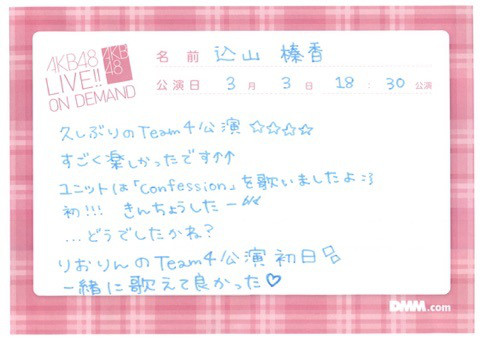 AKB48
LIVE!!
ON DEMAND
AKB
48
名前 込山榛香
公演日 3月3日 18:30公演
久しぶりのTeam4公演☆☆☆☆
すごく楽しかったです↑↑
ユニットは「Confession」を歌いましたよ:)
初!!! きんちょうしたー
...どうでしたかね?
りおりんのTeam4公演初日
一緒に歌えて良かった♡
DMM.com